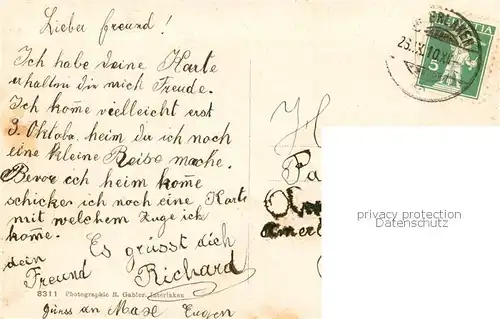 Lieber Freund!
Ich habe deine Karte
erhalten die mich Freude.
Ich kome vielleicht erst
3. Oktober heim da ich noch
eine kleine Reise mache.
Bevor ich heim kome
schicke ich noch eine Karte
mit welchem Zuge ich
kome.
Es grüsst dich
dein
Freund Richard
8311 Photographie R. Gabler, Interlaken
Gruss an Max Eugen
HELVETIA
5
H
Pa
privacy protection
Datenschutz